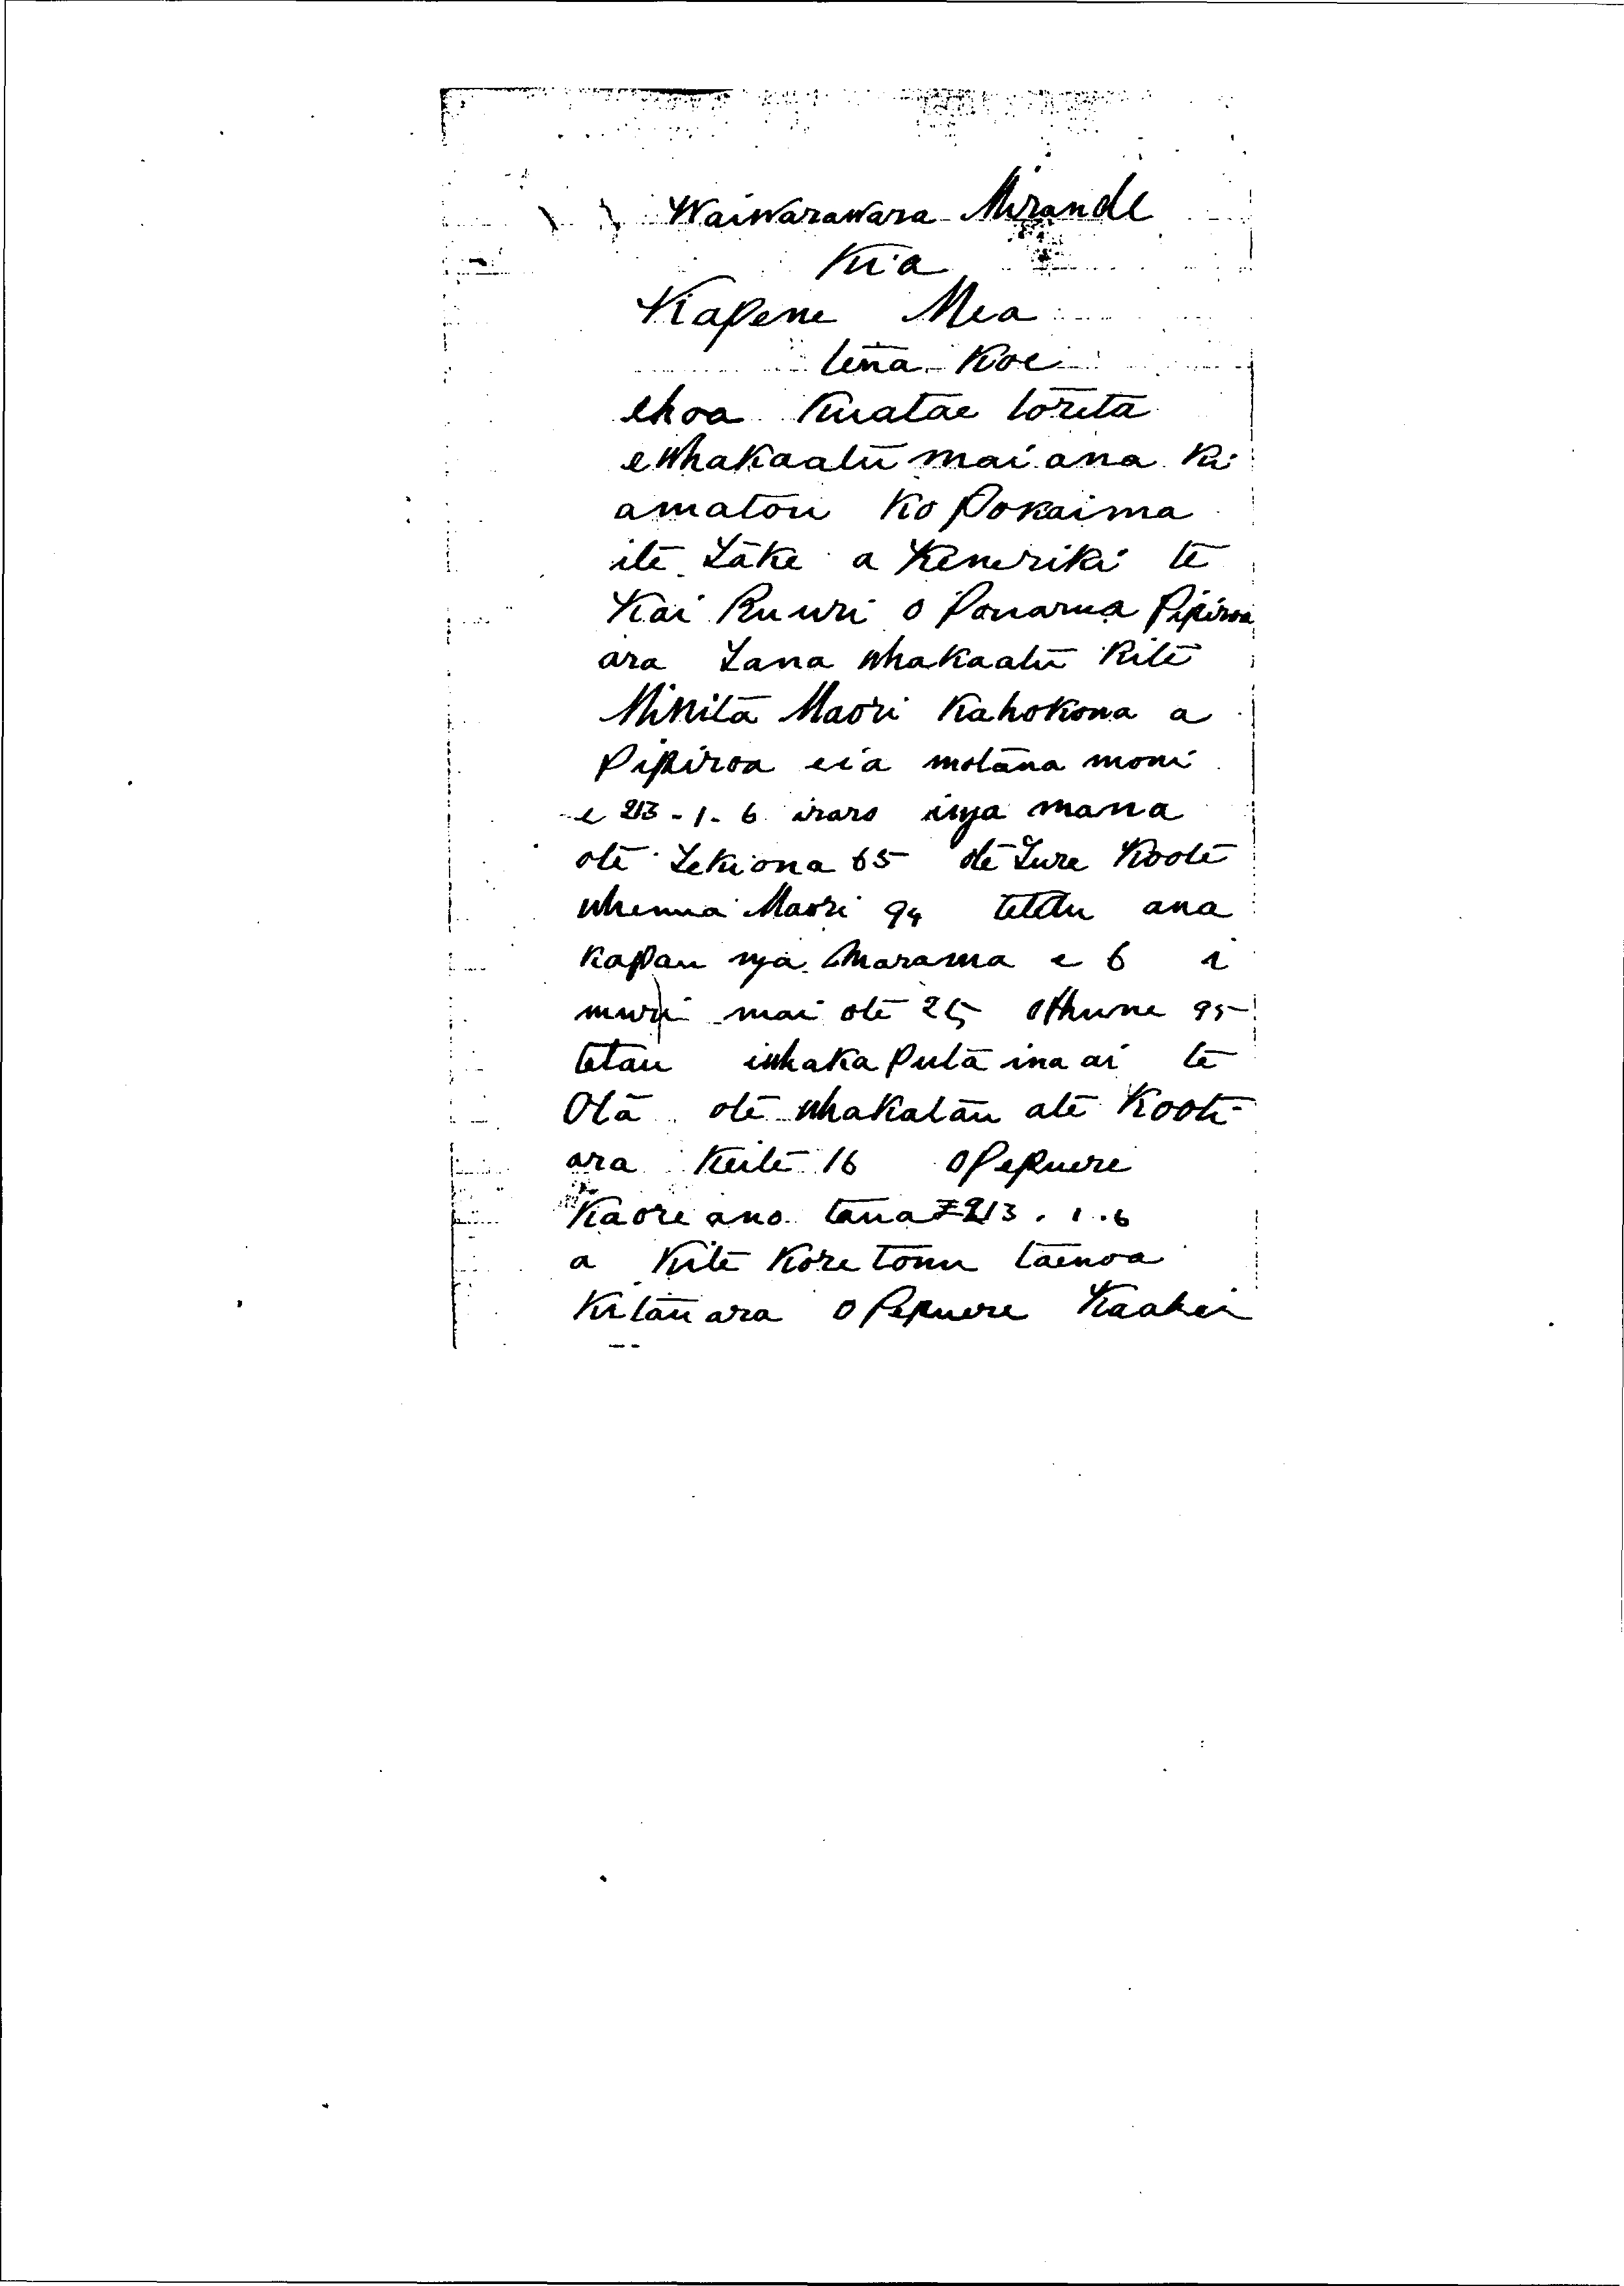 Waiwarawara Mirande
Kia
Kapene Mea
tena Koe
ehoa Kuatae toreta
ewhakaatu mai ana Ki
amatou Ko Pokaima
ite Take a Keneriki te
Kai Ruuri o Pouarua Pipiroa
ara Tana whakaatu Kite
Minita Maori Kahokona a
Pipiroa eia motana moni
e 213-1-6 iraro inga mana
ote Tekiona 65 ote Ture Kooti
whenua Maori 94 tetau ana
Kapau nga Marama e 6 i
muri mai ote 25 oHune 95
tetau iwhaka Puta ina ai te
Ota ote whakatau ate Kooti
ara Keite 16 oPepuere
Kaore ano tana £213.1.6
a Kite Kore tonu taenoa
Kitau ara o Pepuere Kaahei